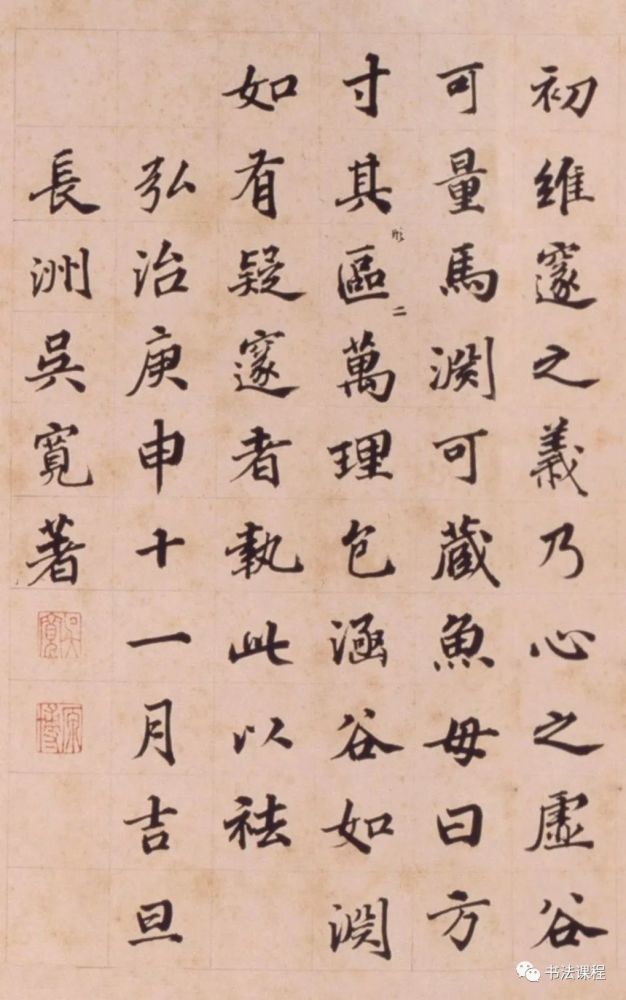 初維邃之義乃心之虛谷
可量馬渊可藏魚毋曰方
寸其區萬理包涵谷如渊
形二
如有疑邃者執此以祛
弘治庚申十一月吉旦
長洲吳寬著
吳寬
原博
书法课程